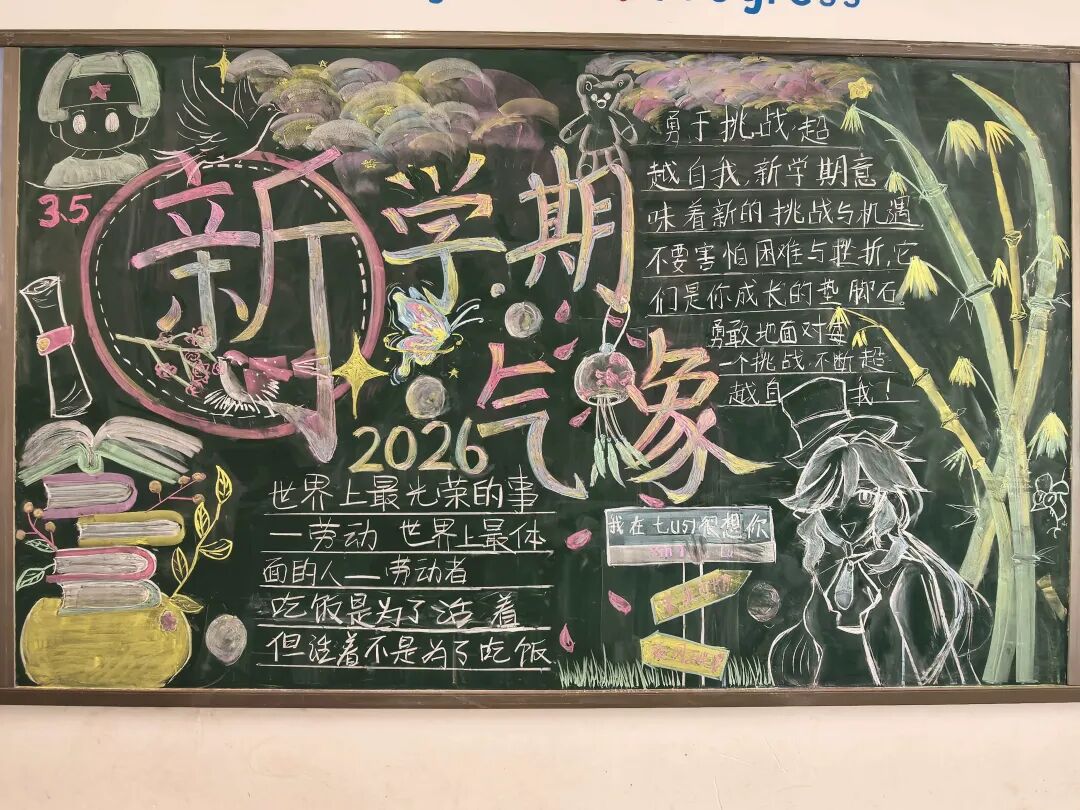 rogress
3.5
新学期
气象
2026
勇于挑战,超
越自我,新学期意
味着新的挑战与机遇
不要害怕困难与挫折,它
们是你成长的垫脚石。
勇敢地面对每
一个挑战,不断超
越自我!
世界上最光荣的事
—劳动 世界上最体
面的人——劳动者
吃饭是为了活着
但活着不是为了吃饭
我在 很想你